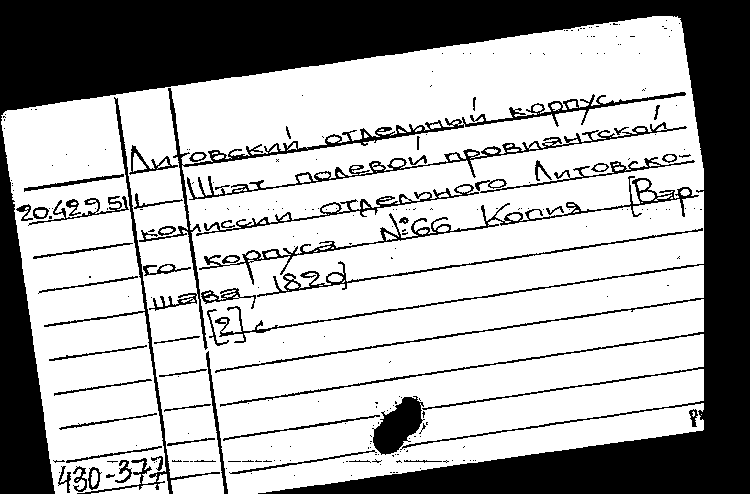 Литовский отдельный корпус.
Штат полевой провиантской
20.429.511.
комиссии отдельного Литовско=
го корпуса. №66. Копия [Вар-
шава, 1820]
[2] с.
430-377